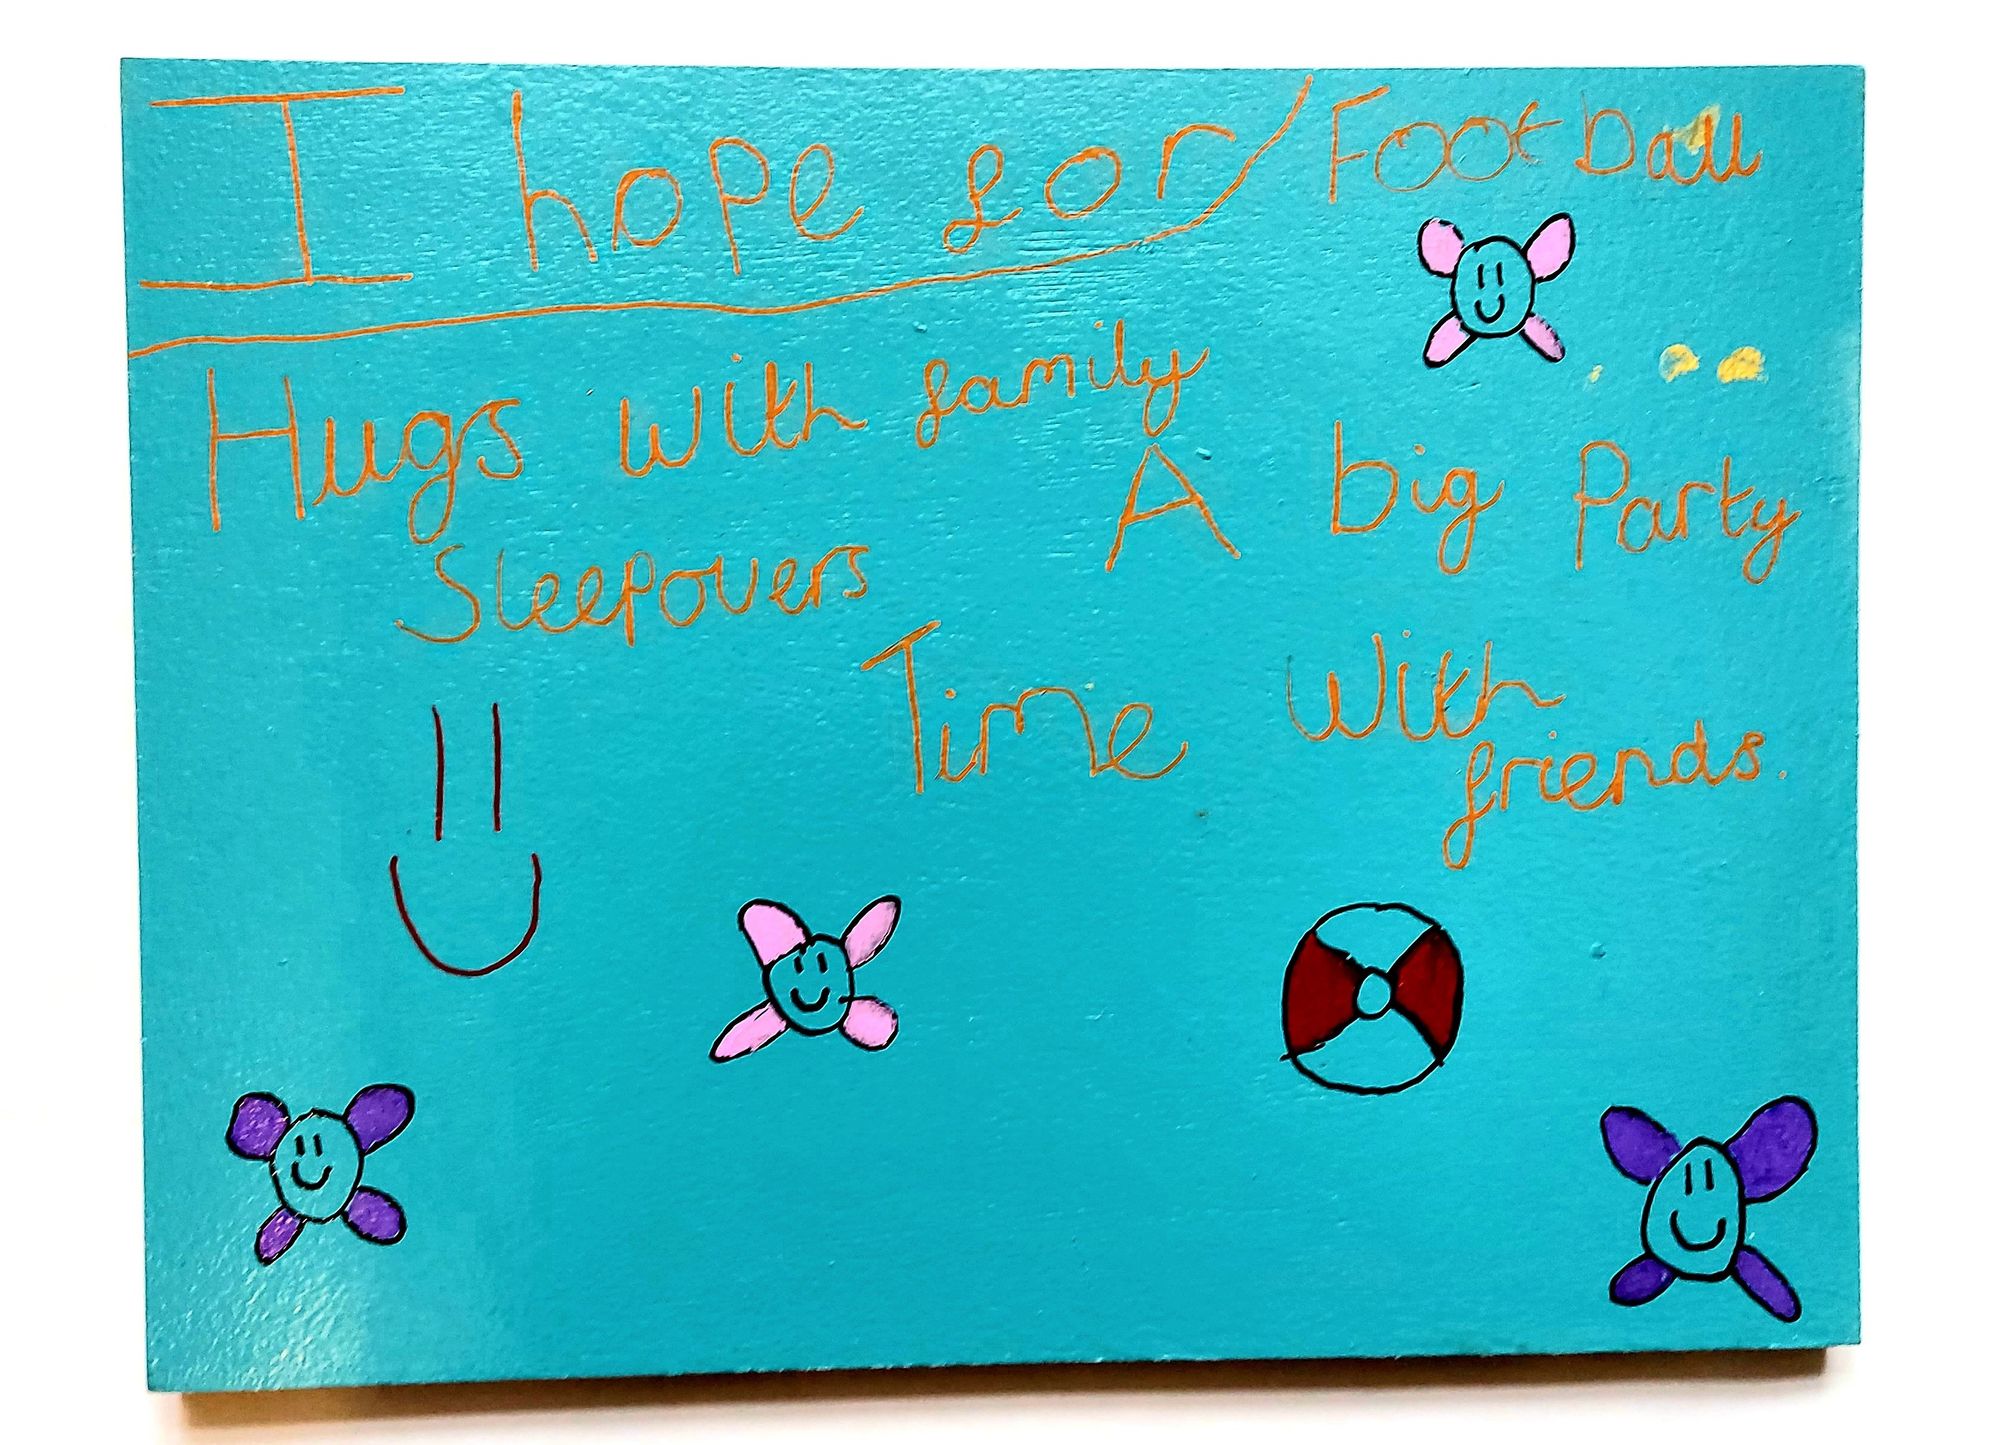 I hope for
Football
Hugs with family
A big Party
Sleepovers
Time With
friends.